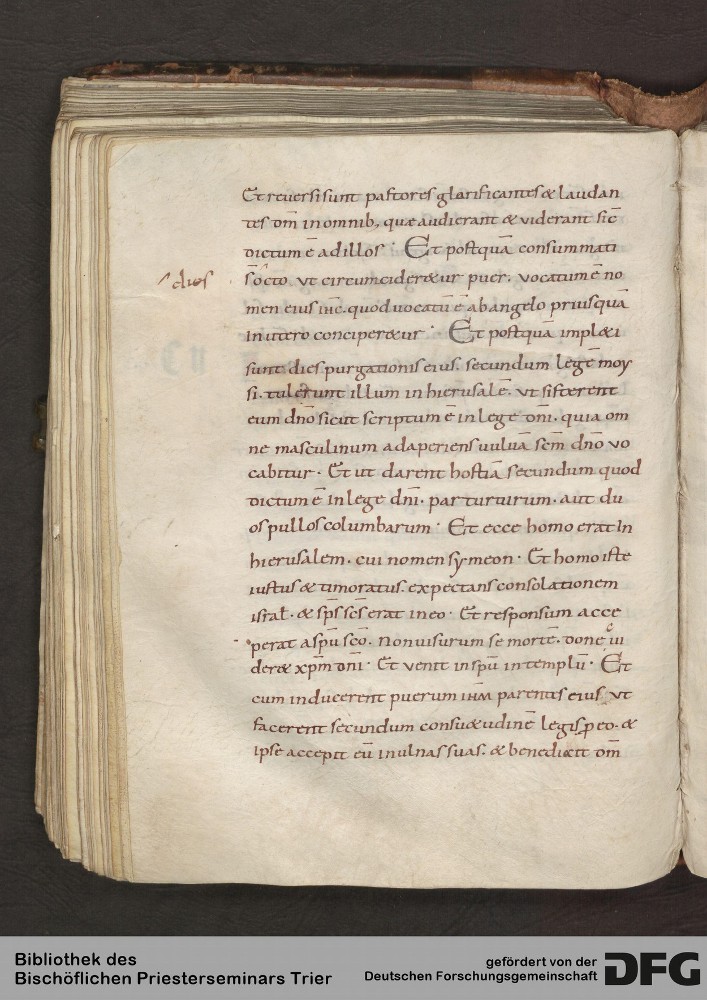 Et reversi sunt pastores glorificantes & laudan
tes dm̄ in omnib; quæ audierant & viderant sic̄
dictum ē ad illos · Et postquā consummati
dies
s̄ octo vt circumcider&ur puer. vocatum ē no
men eius ihc̄. quod vocatū ē ab angelo priusquā
in utero conciper&ur · Et postquā impl&i
sunt dies purgationis eius. secundum legē moy
si. tulerunt illum in hierusalē. vt sisterent
eum dn̄o sicut scriptum ē in lege dn̄i. quia om
ne masculinum adaperiens vulvā sc̄m dn̄o vo
cabitur · Et ut darent hostiā secundum quod
dictum ē in lege dn̄i. par turturum. aut du
os pullos columbarum · Et ecce homo erat in
hierusalem. cui nomen symeon · Et homo iste
iustus & timoratus. expectans consolationem
israł. & sp̄s sc̄s erat in eo · Et responsum acce
perat a sp̄u sc̄o. non visurum se mortē. donec vi
der& xp̄m dn̄i · Et venit in sp̄u in templū · Et
cum inducerent puerum ihm̄ parentes eius. vt
facerent secundum consu&udinē legis ꝓ eo. &
ipse accepit eū in ulnas suas. & benedixit dm̄
Bibliothek des
Bischöflichen Priesterseminars Trier
gefördert von der
Deutschen Forschungsgemeinschaft
DFG